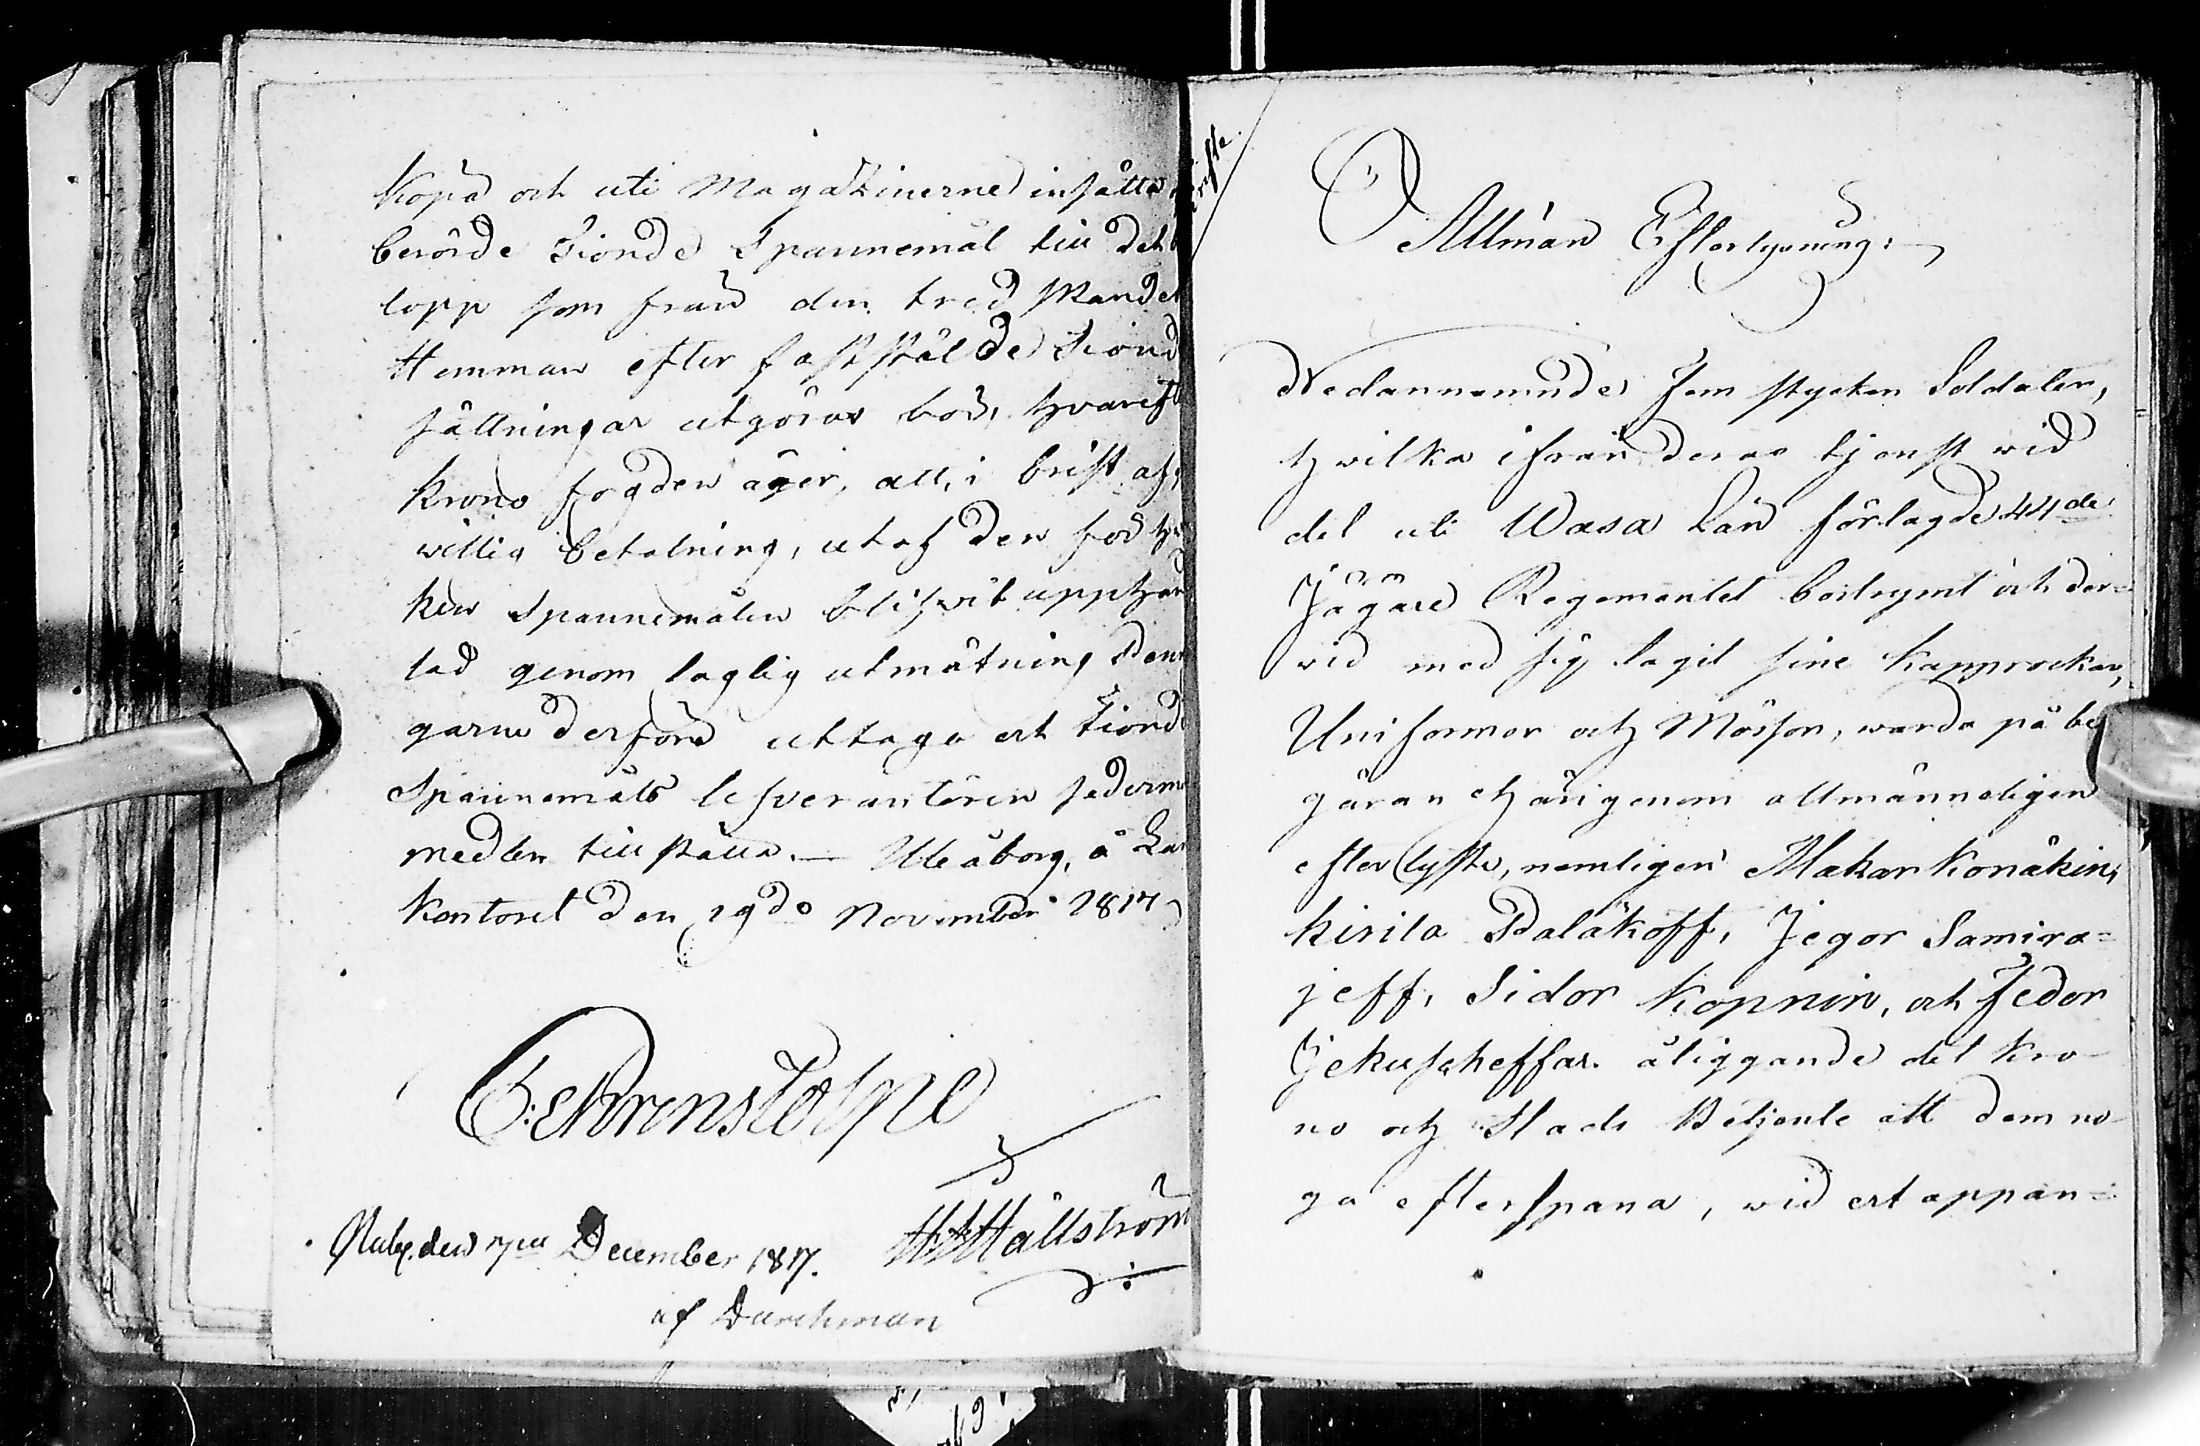 köpa och uti Magazinerne insätta
berörde Tionde Spannemål till det b
lopp som från den tredskande
Hemman efter fastställde Tiond
sättningar utgöras bör, hvareft
krono fogden äger, att, i brist af
willig betalning, utaf den för hw
ken Spannemålen blifwit upphand
lad genom laglig utmätning den
garne derföre uttaga och Tionde
Spannemåls lefverantören sederme
medlen tillställa. — Uleåborg, å Lan
Kontoret den 19de November 1817
C: Ehrenstolpe
H: Hällström
Publ. den 7de December 1817.
af Durchman
Allmän Efterlysning:
Nedannämnde Fem stycken Soldater,
hwilka ifrån deras tjenst wid
del uti Wasa Län förlagde 44de
Jägare Regementet bortrymt och der=
wid med sig tagit sine Kapprockar,
Uniformer och Mössor, warda på be
gäran härigenom allmänneligen
efterlyste, nemligen Makar Konäkin,
Kirila Baläkoff, Jegor Samira=
jeff, Sidor Kopnin, och Fedor
Jekuscheffar. åliggande det Kro-
no och Stads Betjente att dem no-
ga efterspana, wid ertappan=